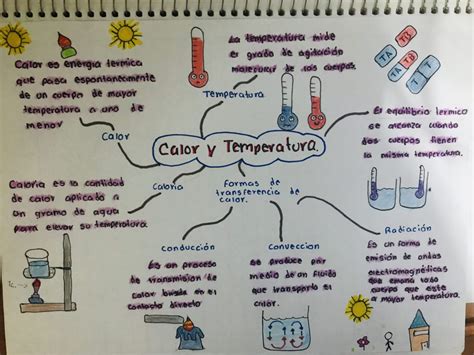 Calor y Temperatura.
Calor es energía termica
que pasa espontaneamente
de un cuerpo de mayor
temperatura a uno de
menor
Calor
La temperatura mide
el grado de agitación
molecular de los cuerpos.
Temperatura
TA
TB
TA
TB
T
T
El equilibrio termico
se alcanza cuando
dos cuerpos tienen
la misma temperatura.
Caloria es la cantidad
de calor aplicado a
un gramo de agua
para elevar su temperatura.
Caloria
Formas de
transferencia de
calor.
Conducción
Es un proceso
de transmision de
calor basado en el
contacto directo
Conveccion
Se produce por
medio de un fluido
que transporta el
calor.
Radiación
Es un forma de
emisión de ondas
electromagnéticas
que emana todo
cuerpo que este
a mayor temperatura.